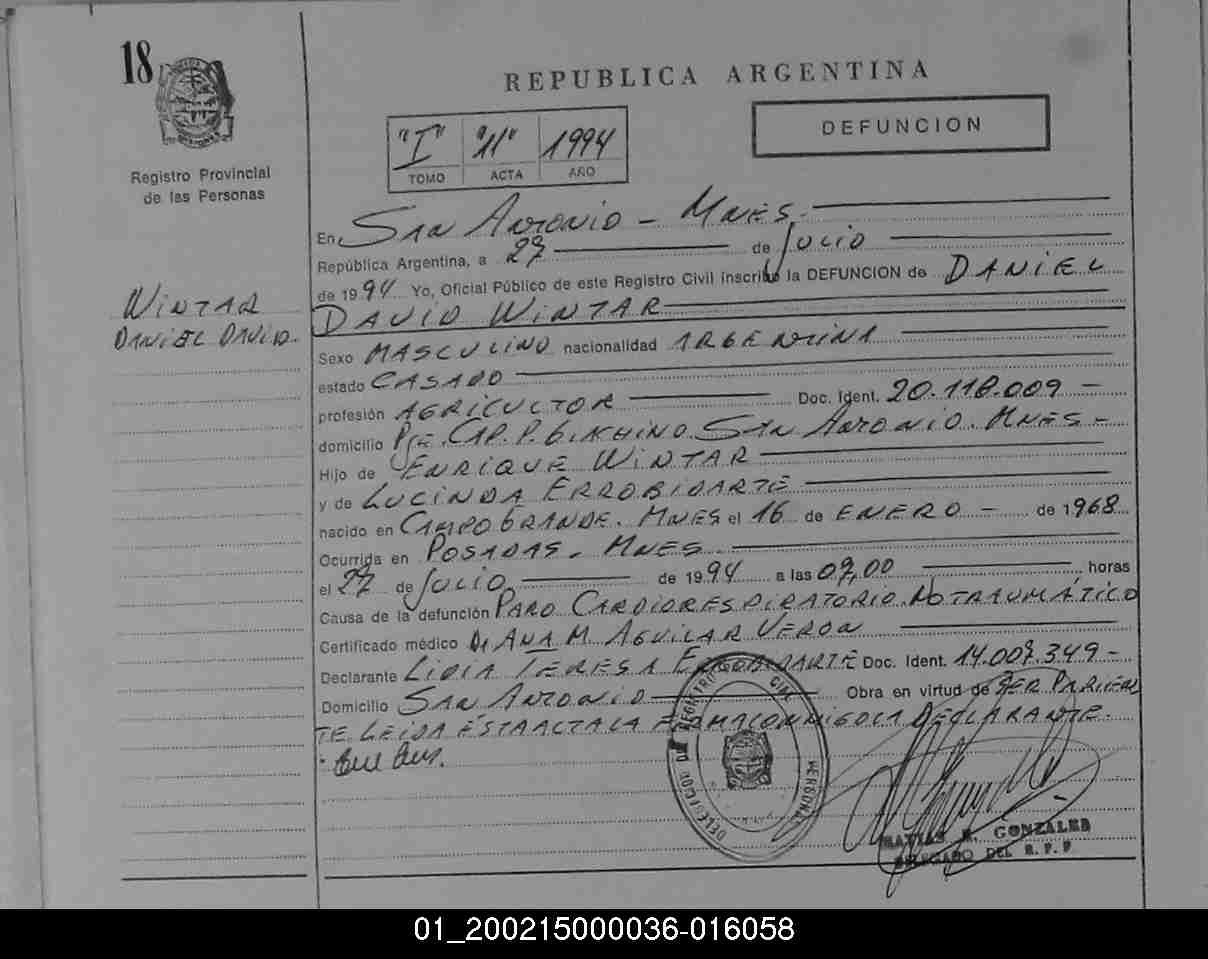 18
REPUBLICA ARGENTINA
"I" "11" 1994
TOMO ACTA AÑO
DEFUNCION
Registro Provincial
de las Personas
WINTAR
DANIEL DAVID.
En SAN ANTONIO - MNES.
República Argentina, a 27 de JULIO
de 1994 Yo, Oficial Público de este Registro Civil inscribo la DEFUNCION de DANIEL
DAVID WINTAR
Sexo MASCULINO nacionalidad ARGENTINA
estado CASADO
profesión AGRICULTOR Doc. Ident. 20.118.009 -
domicilio Pje. CAP. P. SAN ANTONIO. MNES -
Hijo de ENRIQUE WINTAR
y de LUCINDA ERROBIDARTE
nacido en CAMPO GRANDE. MNES el 16 de ENERO - de 1968
Ocurrida en POSADAS. MNES
el 27 de JULIO de 1994 a las 07,00 horas
Causa de la defunción PARO CARDIORESPIRATORIO. NO TRAUMÁTICO
Certificado médico Dr ANA M. AGUILAR VERON
Declarante LIDIA TERESA ERROBIDARTE Doc. Ident. 14.007.349 -
Domicilio SAN ANTONIO Obra en virtud de SER PARIEN
TE. LEIDA ESTA ACTA LA FIRMA CONMIGO LA DECLARANTE.
REGISTRO PERSONAS
MATIAS R. GONZALES
DELEGADO DEL R. P. P
01_200215000036-016058